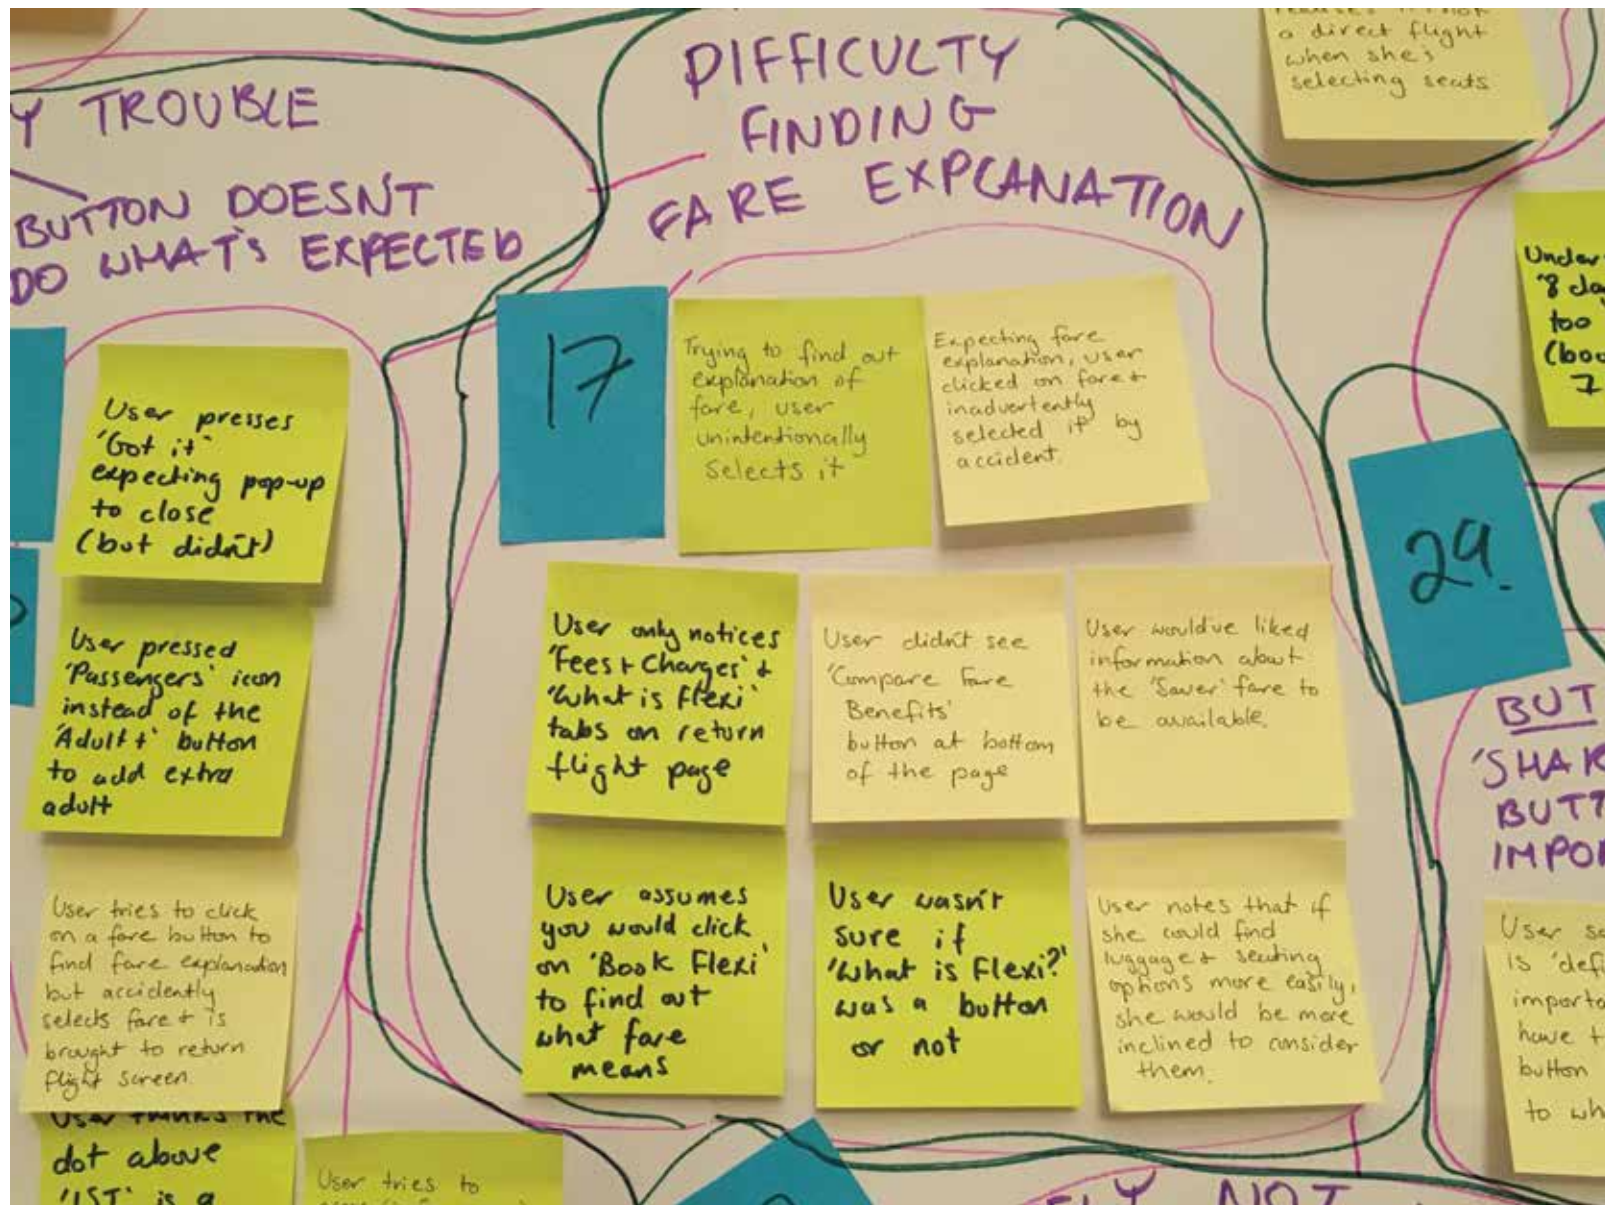 a direct flight
when she's
selecting seats
Y TROUBLE
BUTTON DOESN'T
DO WHAT'S EXPECTED
DIFFICULTY
FINDING
FARE EXPLANATION
User presses
'Got it'
expecting pop-up
to close
(but didn't)
User pressed
'Passengers' icon
instead of the
'Adult +' button
to add extra
adult
User tries to click
on a fare button to
find fare explanation
but accidently
selects fare + is
brought to return
flight screen.
User thinks the
dot above
'1ST' is a
User tries to
17
Trying to find out
explanation of
fare, user
unintentionally
selects it
Expecting fare
explanation, user
clicked on fare +
inadvertently
selected it by
accident.
User only notices
'Fees + Charges' +
'What is Flexi'
tabs on return
flight page
User didn't see
'Compare Fare
Benefits'
button at bottom
of the page
User would've liked
information about
the 'Saver' fare to
be available.
User assumes
you would click
on 'Book Flexi'
to find out
what fare
means
User wasn't
sure if
'What is Flexi?'
was a button
or not
User notes that if
she could find
luggage + seating
options more easily,
she would be more
inclined to consider
them.
Under
'8 da
too
(boo
7
29.
BUT
'SHAR
BUTT
IMPO
User s
is 'defi
importa
have t
button
to wh
LY NOT